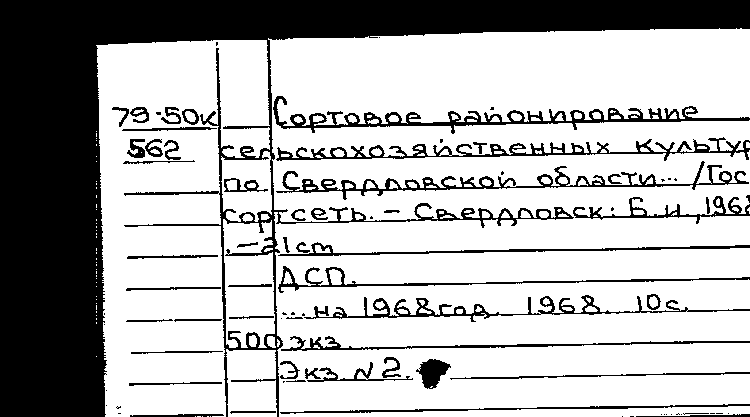 79-50к Сортовое районирование
562 сельскохозяйственных культур
по Свердловской области... /Гос
сортсеть. – Свердловск: Б.и., 1968
. – 21 cm
ДСП.
... на 1968 год. 1968. 10 с.
500 экз.
Экз. N 2.